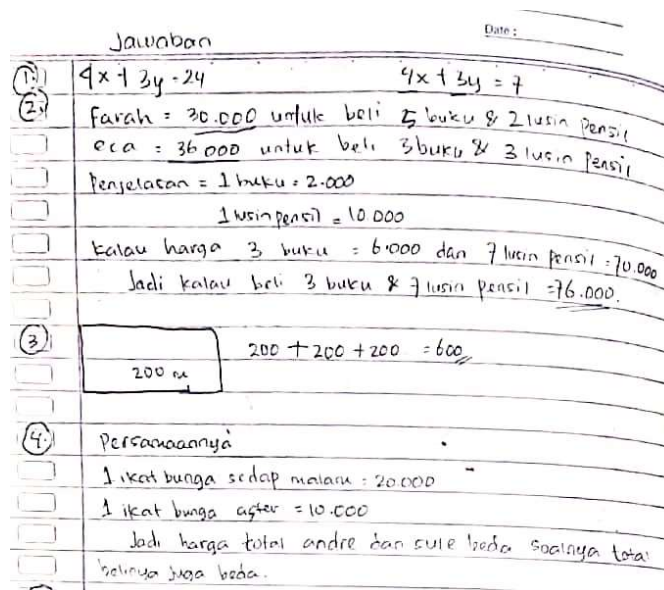 Date :
Jawaban
1. 4x + 3y = 24 4x + 3y = 7
2. Farah = 30.000 untuk beli 5 buku & 2 lusin Pensil
eca = 36.000 untuk beli 3 buku & 3 lusin Pensil
Penjelasan = 1 buku = 2.000
1 lusin pensil = 10.000
Kalau harga 3 buku = 6.000 dan 7 lusin pensil = 70.000
Jadi kalau beli 3 buku & 7 lusin pensil = 76.000.
3 200 + 200 + 200 = 600
200 m
4. Persamaannya
1 ikat bunga sedap malam = 20.000
1 ikat bunga aster = 10.000
Jadi harga total andre dan sule beda soalnya total
belinya juga beda.